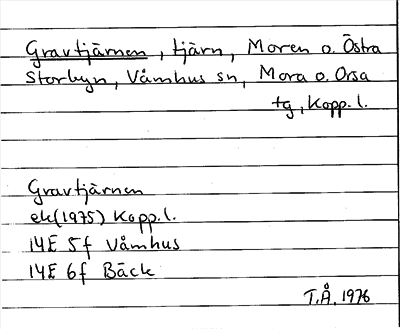 Gravtjärnen, tjärn, Moren o. Östra
Storbyn, Våmhus sn, Mora o. Orsa
tg, Kopp. l.
Gravtjärnen
ek(1975) Kopp. l.
14E 5f Våmhus
14E 6f Bäck
T.Å. 1976